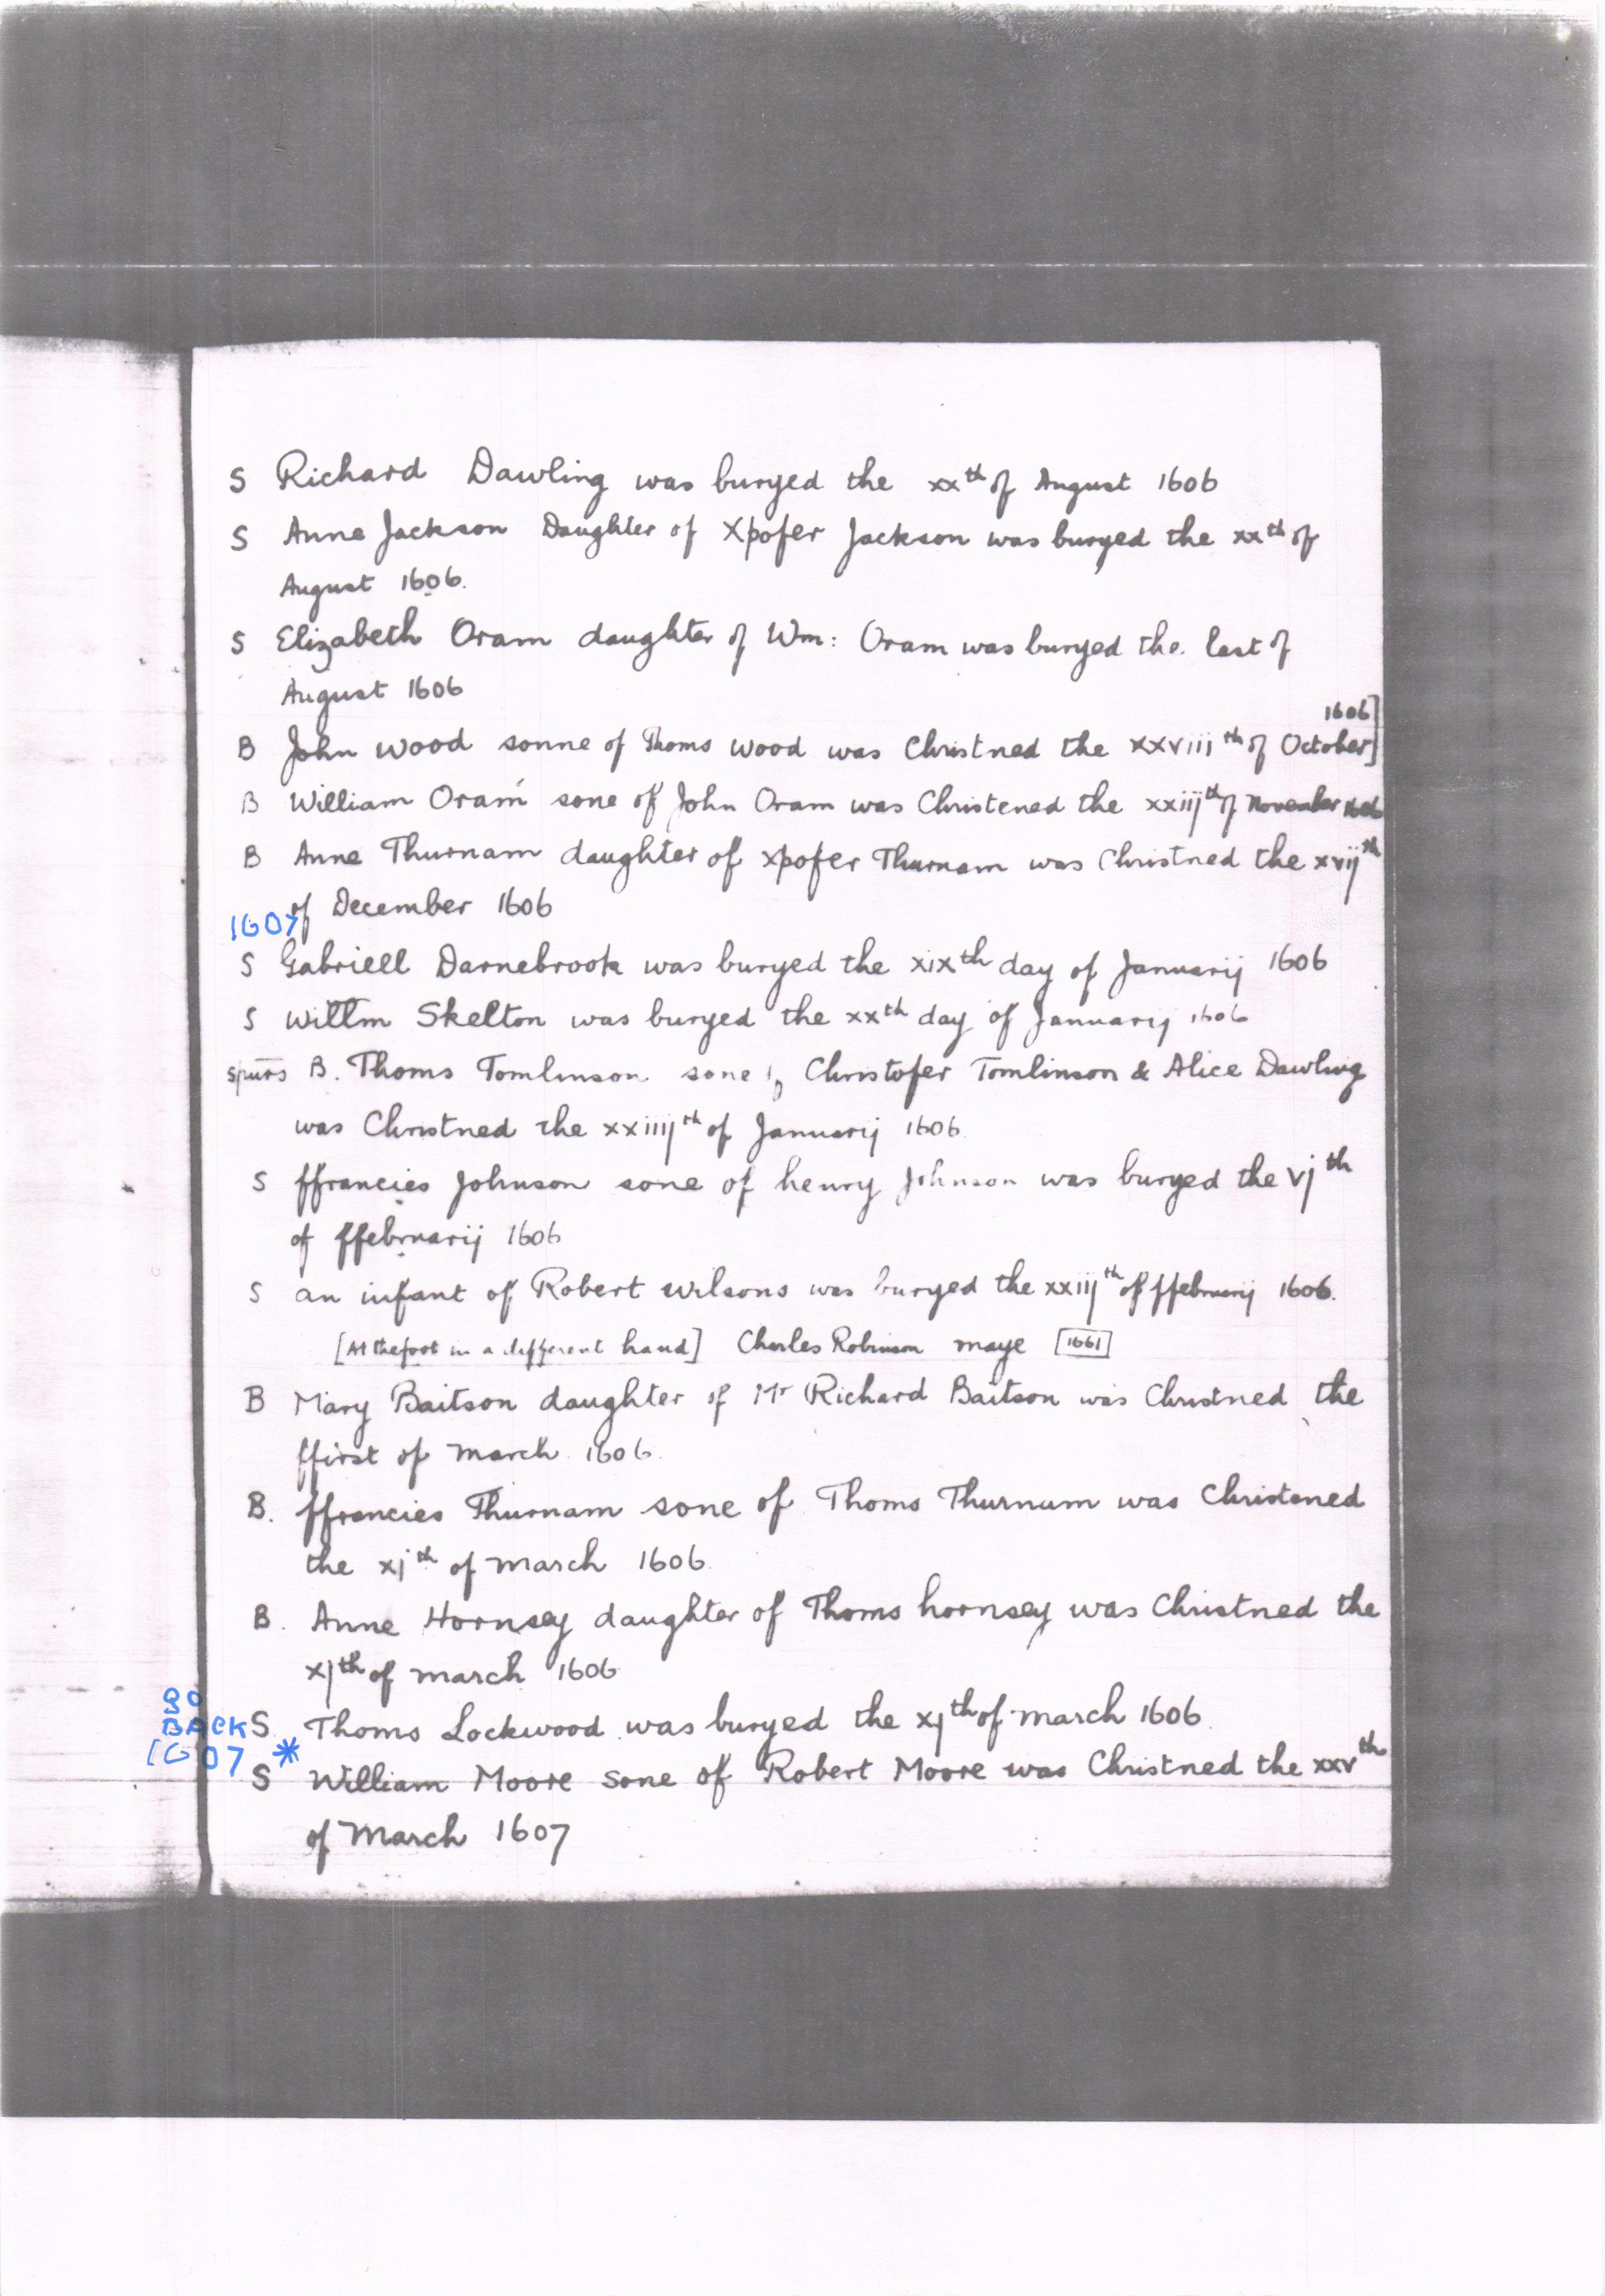 S Richard Dawling was buryed the xxth of August 1606
S Anne Jackson Daughter of Xpofer Jackson was buryed the xxth of
August 1606.
S Elizabeth Oram daughter of Wm: Oram was buryed the last of
August 1606
1606]
B John Wood sonne of Thoms Wood was Christned the xxviiith of October]
B William Oram sone of John Oram was Christened the xxiijth of November 1606
B Anne Thurnam daughter of xpofer Thurnam was Christned the xvijth
of December 1606
1607
S Gabriell Darnebrook was buryed the xixth day of Januarij 1606
S Willm Skelton was buryed the xxth day of Januarij 1606
spurs B. Thoms Tomlinson sone of Christofer Tomlinson & Alice Dawling
was Christned the xxiiijth of Januarij 1606.
S ffrancies Johnson sone of henry Johnson was buryed the vjth
of ffebruarij 1606
S an infant of Robert Wilsons was buryed the xxiijth of ffebruarij 1606.
[At the foot in a different hand] Charles Robinson maye [1661]
B Mary Baitson daughter of Mr Richard Baitson was Christned the
ffirst of march 1606.
B. ffrancies Thurnam sone of Thoms Thurnum was Christened
the xjth of march 1606.
B. Anne Hornsey daughter of Thoms hornsey was Christned the
xjth of march 1606
GO
BACK S. Thoms Lockwood was buryed the xjth of march 1606.
1607 *
S William Moore sone of Robert Moore was Christned the xxvth
of March 1607